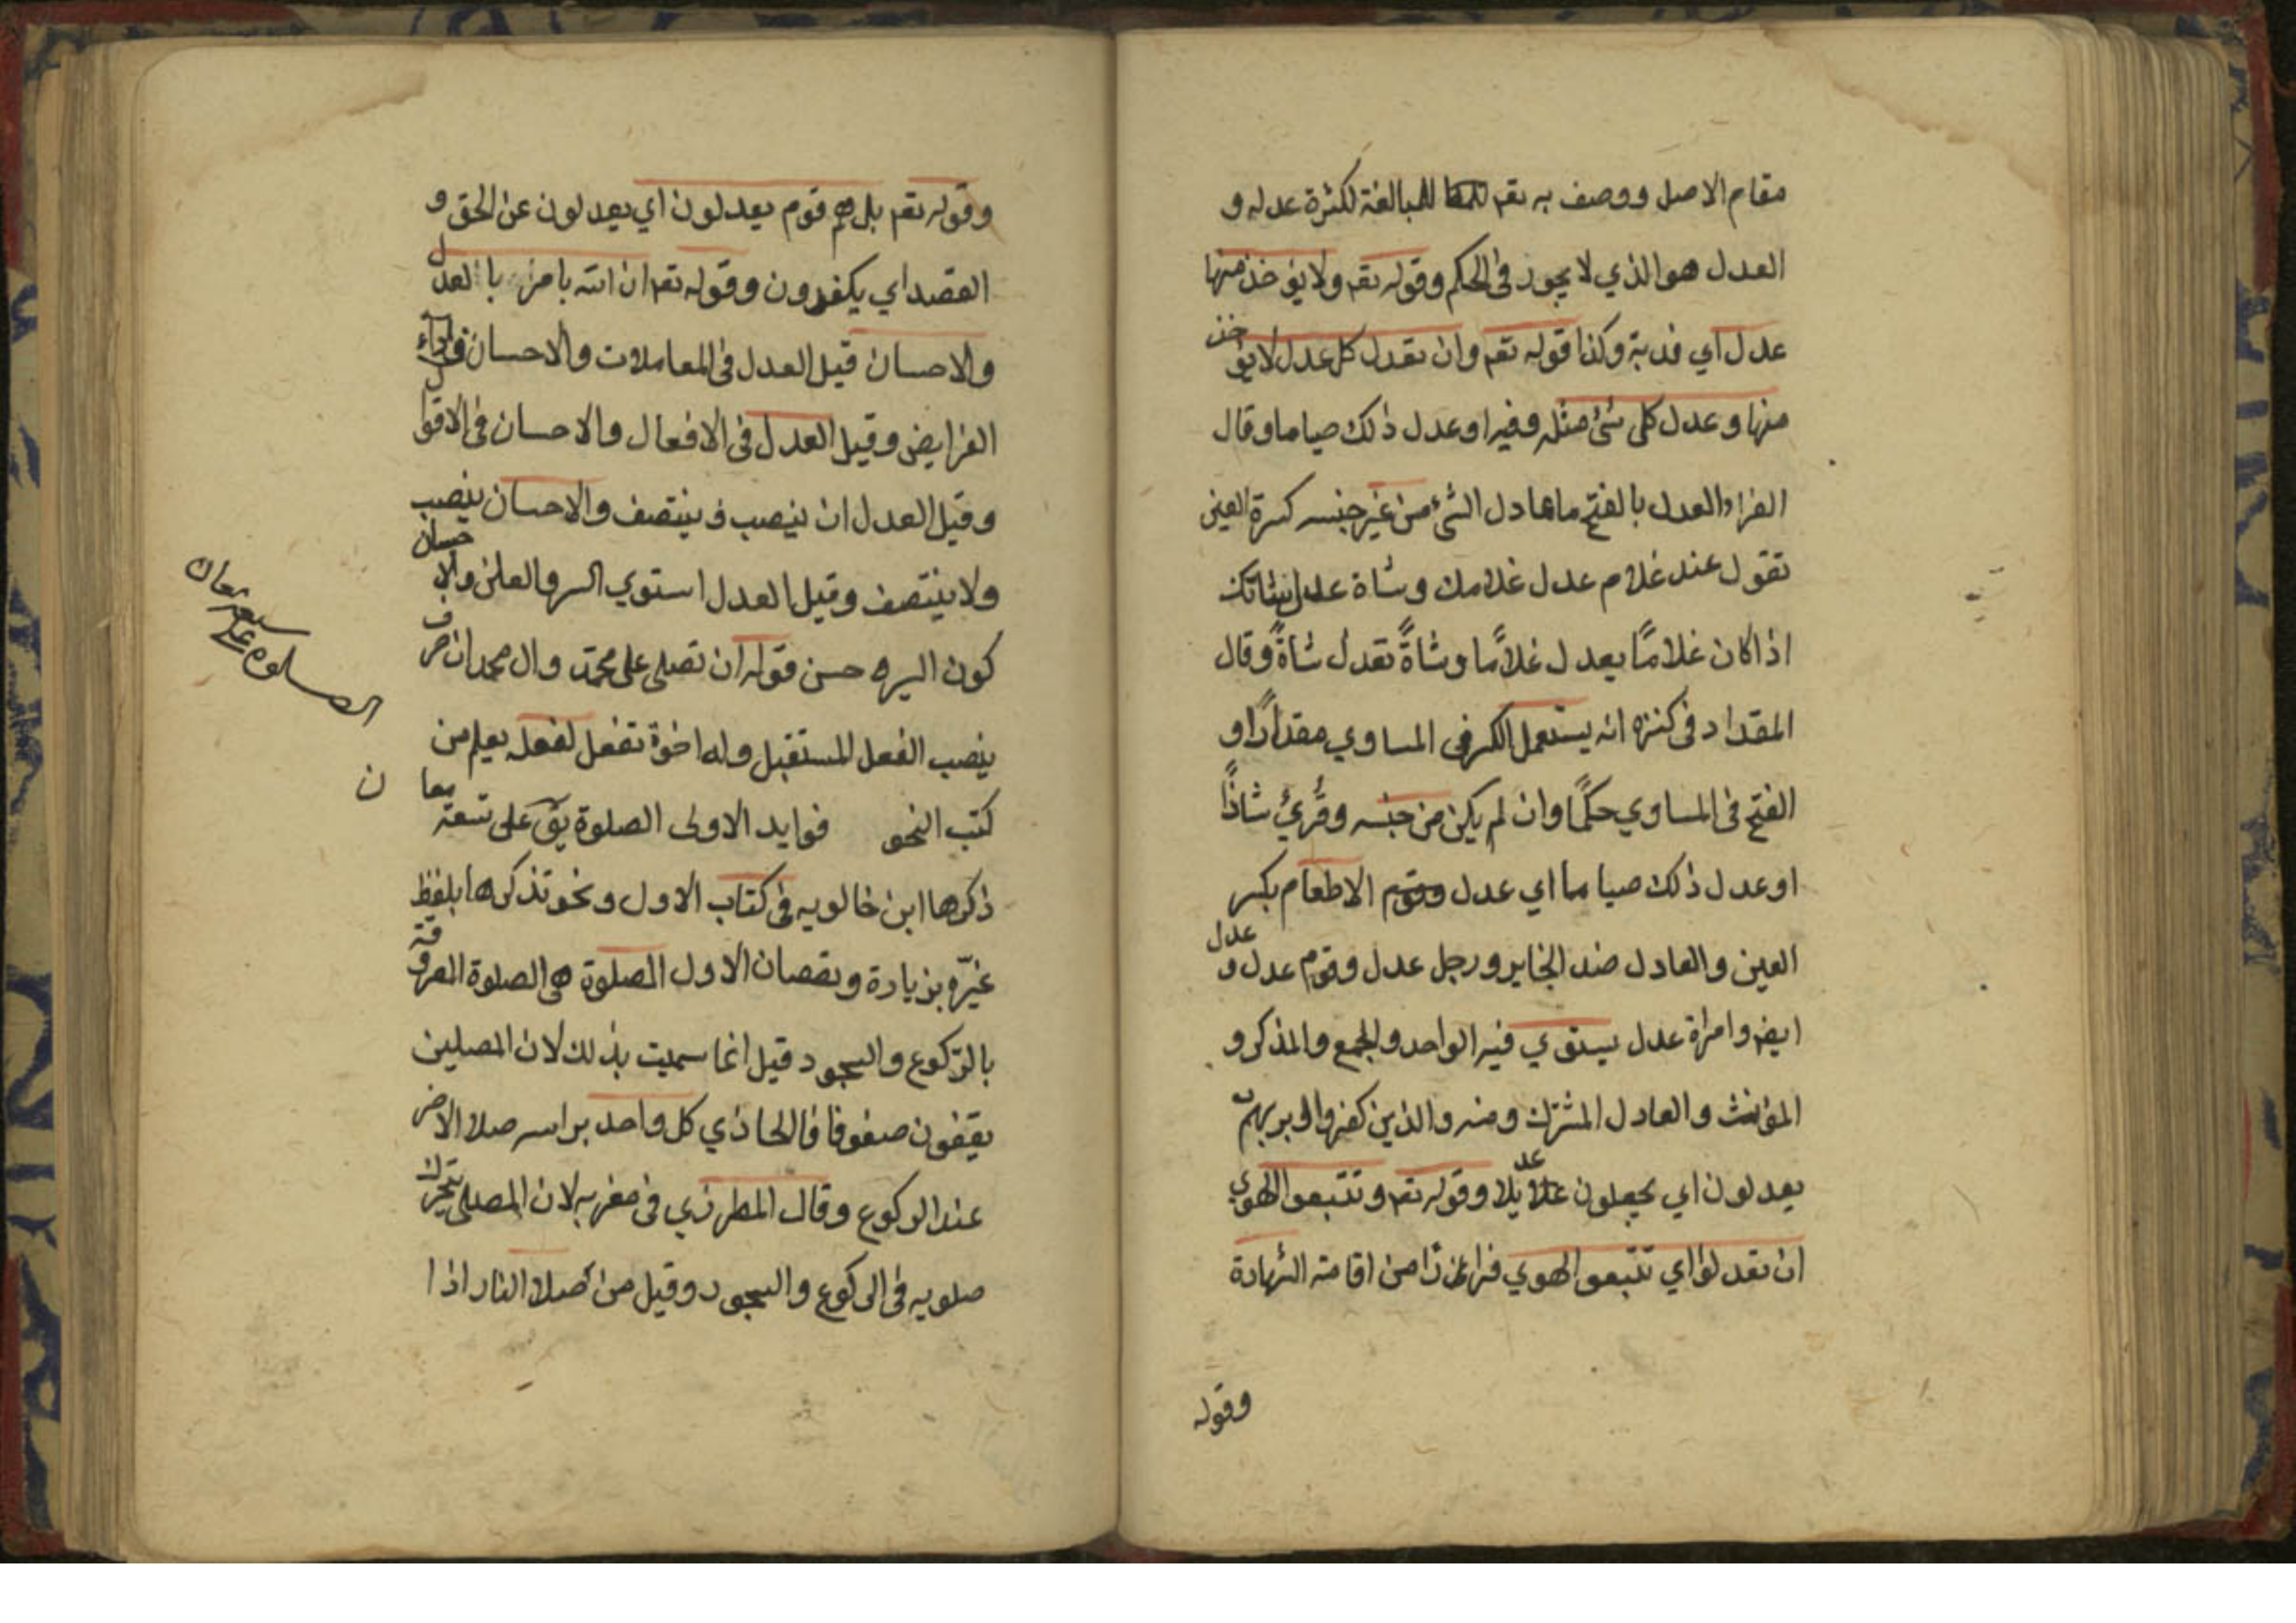 مقام الاصل ووصف به تعم للمبالغة لكثرة عدله و
العدل هو الذي لا يجور في الحكم وقوله تعم ولا يؤخذ منها
عدل اي فدية وكذا قوله تعم وان تعدل كل عدل لا يؤخذ
منها وعدل كلي شئ مثله وفيه او عدل ذلك صياما وقال
الفراء العدل بالفتح ما عادل الشئ من غير جنسه كسرة العين
تقول عند غلام عدل غلامك وشاة عدل شاتك
اذا كان غلامًا يعدل غلامًا وشاةً تعدل شاةً وقال
المقداد في كنزه انه يستعمل الكسر في المساوي مقدارًا و
الفتح في المساوي حكمًا وان لم يكن من جنسه وقُرئ شاذًا
او عدل ذلك صياما اي عدل الاطعام بكسر
العين والعادل ضد الجاير ورجل عدل وقوم عدل وعدل
ايض وامراة عدل يستوي فيه الواحد والجمع والمذكر و
المؤنث والعادل المشرك ومنه والذين كفروا بربهم
يعدلون اي يجعلون عديلا وقوله تعم وتتبعوا الهوي
ان تعدلوا اي تتبعوا الهوي فرارًا من اقامة الشهادة
وقوله
وقوله تعم بل هم قوم يعدلون اي يعدلون عن الحق و
القصد اي يكفرون وقوله تعم ان الله يامر بالعدل
والاحسان قيل العدل في المعاملات والاحسان في اداء
الفرايض وقيل العدل في الافعال والاحسان في الاقوال
وقيل العدل ان ينصب وينتصف والاحسان ينصب
ولا ينتصف وقيل العدل استوي السر والعلن والاحسان
كون السيره حسن قوله ان تصلي على محمد وال محمد ان حرف
ينصب الفعل المستقبل وله اخوة تفعل لفعله يعلم من
كتب النحو فوايد الاولى الصلوة يق على تسعة معان
ذكرها ابن خالويه في كتاب الاول ونحو تذكرها بلفظ
غيره بزيادة ونقصان الاول الصلوة هي الصلوة المعروفة
بالركوع والسجود قيل انما سميت بذلك لان المصلين
يقفون صفوفا فالحاذي كل واحد براسه صلا الاخر
عند الركوع وقال المطرزي في مغربه لان المصلي يتحرك
صلويه في الركوع والسجود وقيل من اصلا النار اذا
الصلوه على تسعة معان